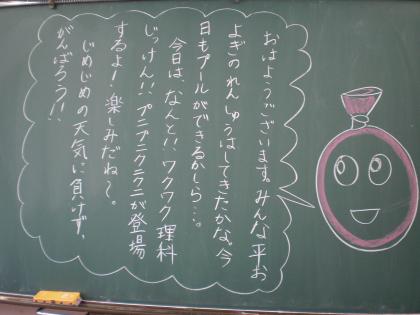 おはようございます。みんな平お
よぎのれんしゅうはしてきたかな。今
日もプールができるかしら…。
今日は、なんと!!ワクワク理科
じっけん!!プニプニクニクニが登場
するよ!楽しみだね〜。
じめじめの天気に負けず、
がんばろう!!